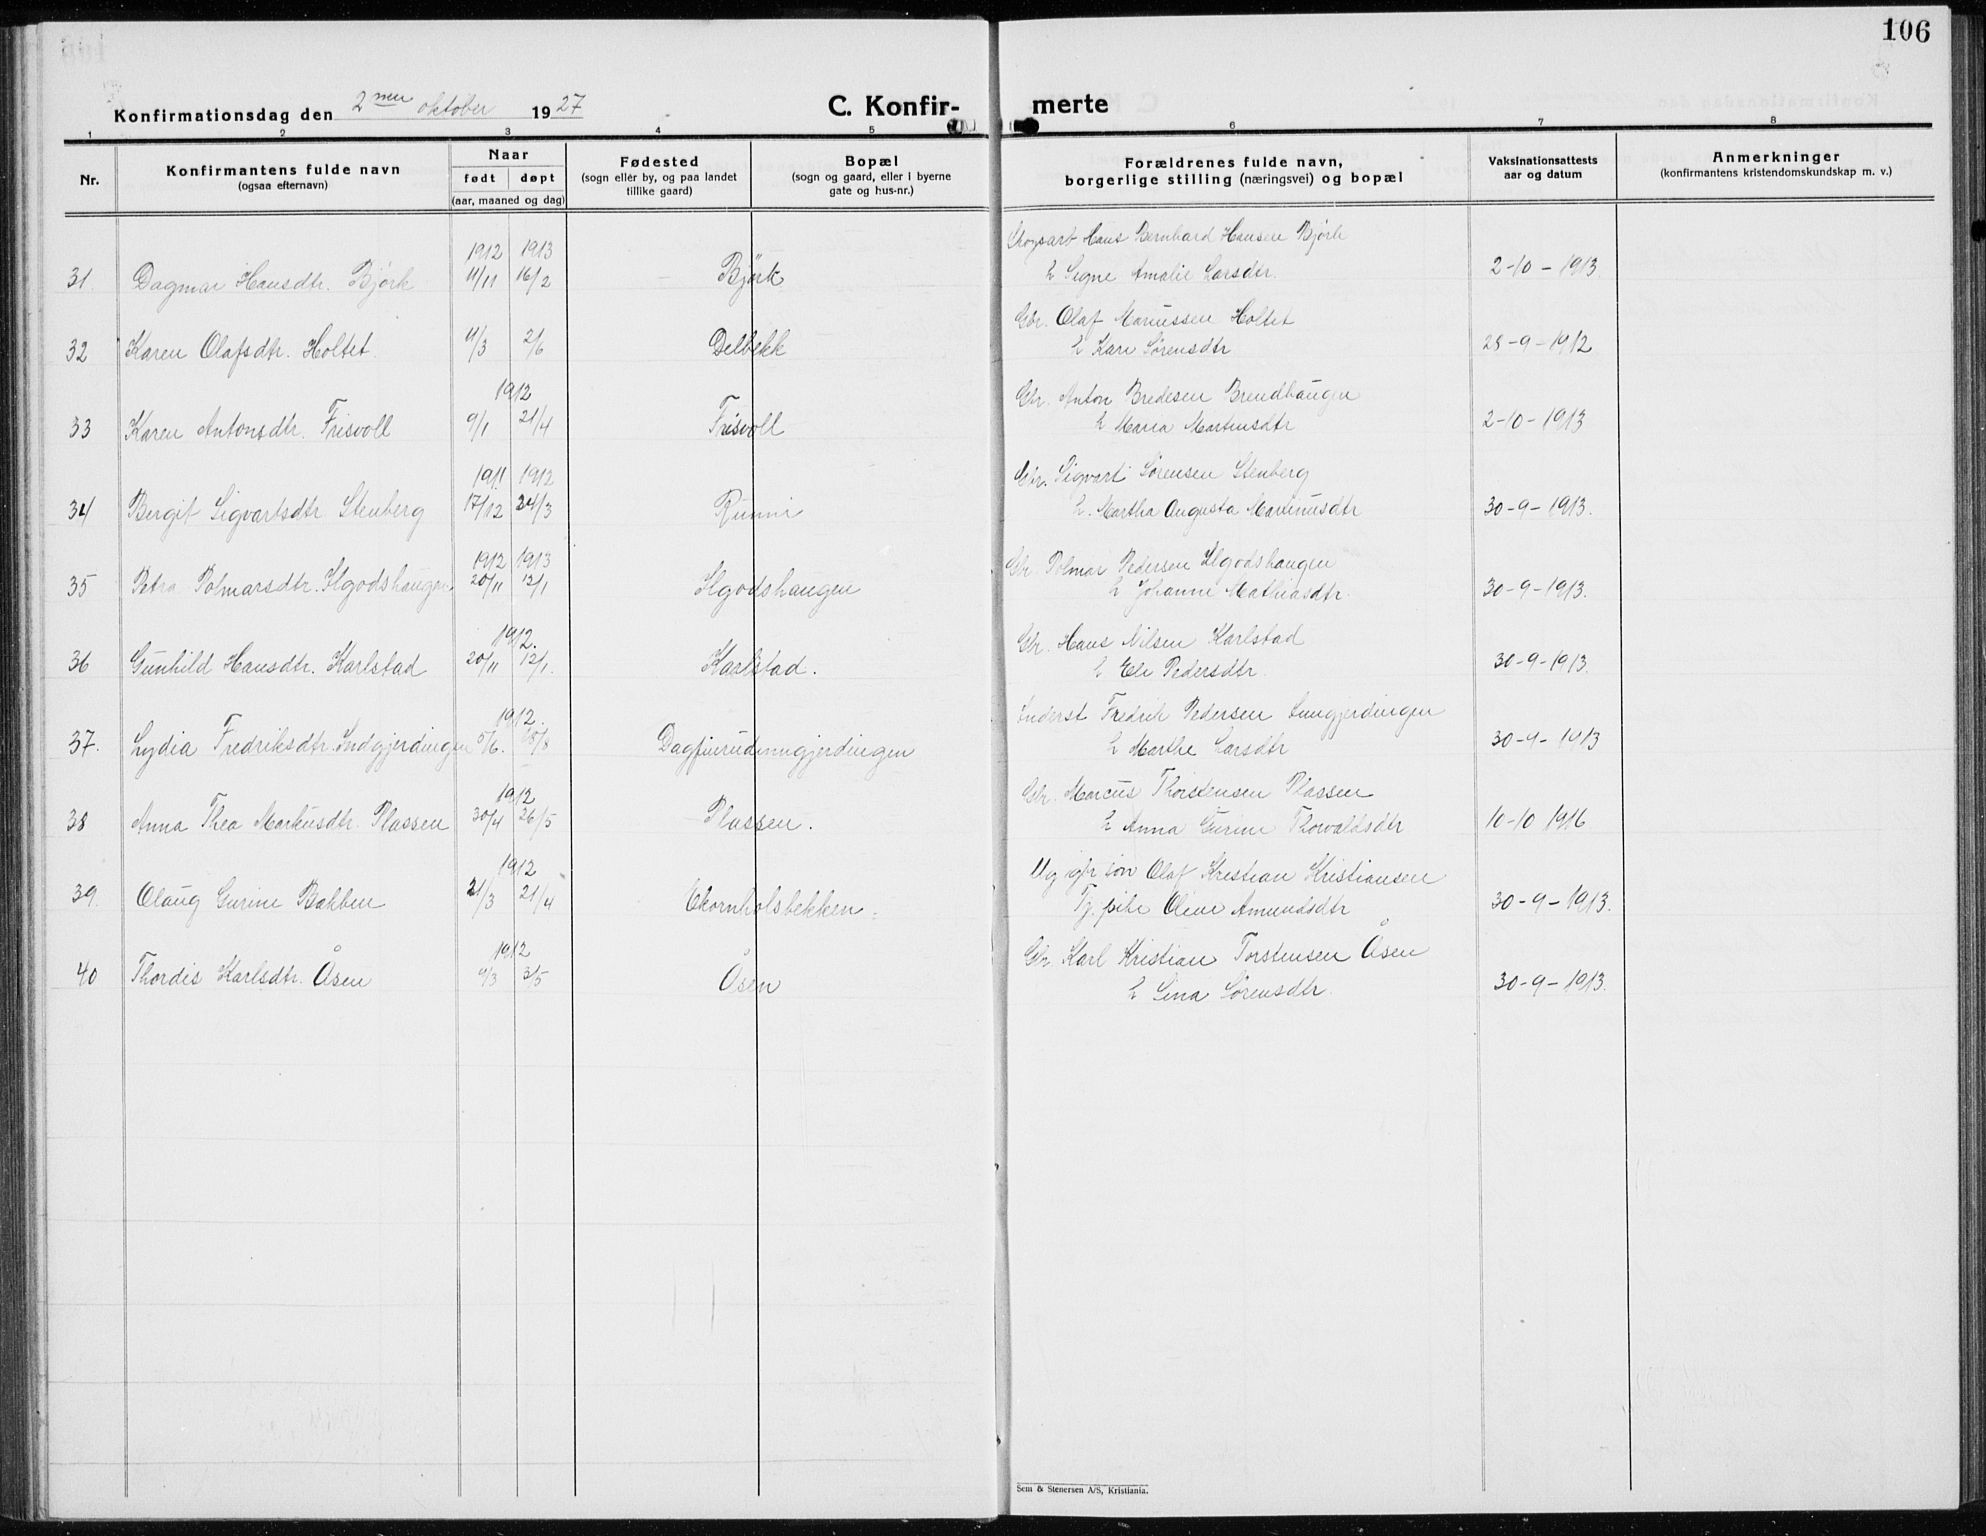 106
Konfirmationsdag den 2nen oktober 1927
C. Konfir- merte
1 2 3 4 5 6 7 8
Nr.
Konfirmantens fulde navn
(ogsaa efternavn)
Naar
født døpt
(aar, maaned og dag)
Fødested
(sogn eller by, og paa landet
tillike gaard)
Bopæl
(sogn og gaard, eller i byerne
gate og hus-nr.)
Forældrenes fulde navn,
borgerlige stilling (næringsvei) og bopæl
Vaksinationsattests
aar og datum
Anmerkninger
(konfirmantens kristendomskundskap m. v.)
1912 1913 Hans Bernhard Hansen Bjørk
31. Dagmar Hansdtr. Bjørk 11/11 16/2 Bjørk & Signe Amalie Larsdtr. 2-10-1913
Gbr. Olaf Mariussen Holtet
32 Karen Olafsdtr. Holtet. 11/3 2/6 Delbekk & Kari Sørensdtr 28-9-1912
1912 Gbr. Anton Bredesen Brendhaugen
33 Karen Antonsdtr. Frisvoll 9/1 21/4 Frisvoll & Maria Martinsdtr 2-10-1913
1911 1912 Gbr. Sigvart Sørensen Stenberg
34 Bergit Sigvartsdtr Stenberg 17/12 24/3 Rünni &. Martha Augusta Marinusdtr 30-9-1913.
1912 1913 Gbr. Polmar Pedersen Ilgodshaugen
35 Petra Polmarsdtr. Ilgodshaugen 20/11 12/1 Ilgodshaugen & Johanne Mathiasdtr. 30-9-1913.
1912. Gbr. Hans Nilsen Karlstad
36 Gunhild Hansdtr. Karlstad 20/11 12/1. Karlstad. & Eli Pedersdtr. 30-9-1913.
1912. Inderst Fredrik Pedersen Inngjerdingen
37. Lydia Fredriksdtr. Indgjerdingen /6. /8 Dagfinrudinngjerdingen & Marthe Larsdtr 30-9-1913
1912 Gbr. Marcus Thorstensen Plassen
38 Anna Thea Markusdtr. Plassen 30/4 26/5 Plassen. & Anna Gurine Thorvaldsdtr 10-10 1916
1912 Ug gbr søn Olaf Kristian Kristiansen
39. Olaug Gurine Bakken 21/3 21/4 Ekornholsbekken. Tj. pike Oline Amundsdtr 30-9-1913.
1912 Gbr. Karl Kristian Torstensen Åsen
40 Thordis Karlsdtr. Åsen 9/3 3/5 Åsen & Lina Sørensdtr. 30-9-1913.
Sem & Stenersen A/S, Kristiania.